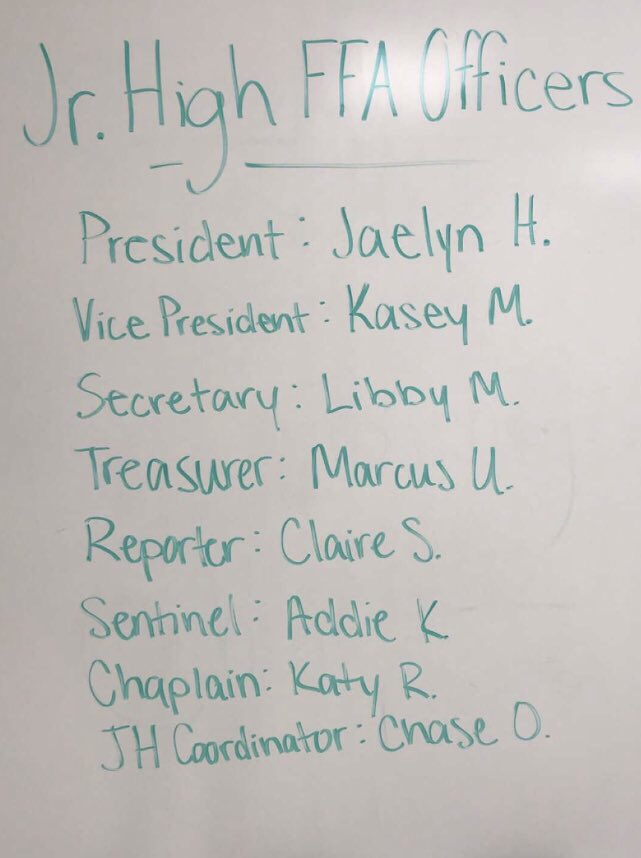 Jr. High FFA Officers
President: Jaelyn H.
Vice President: Kasey M.
Secretary: Libby M.
Treasurer: Marcus U.
Reporter: Claire S.
Sentinel: Addie K
Chaplain: Katy R.
JH Coordinator: Chase O.